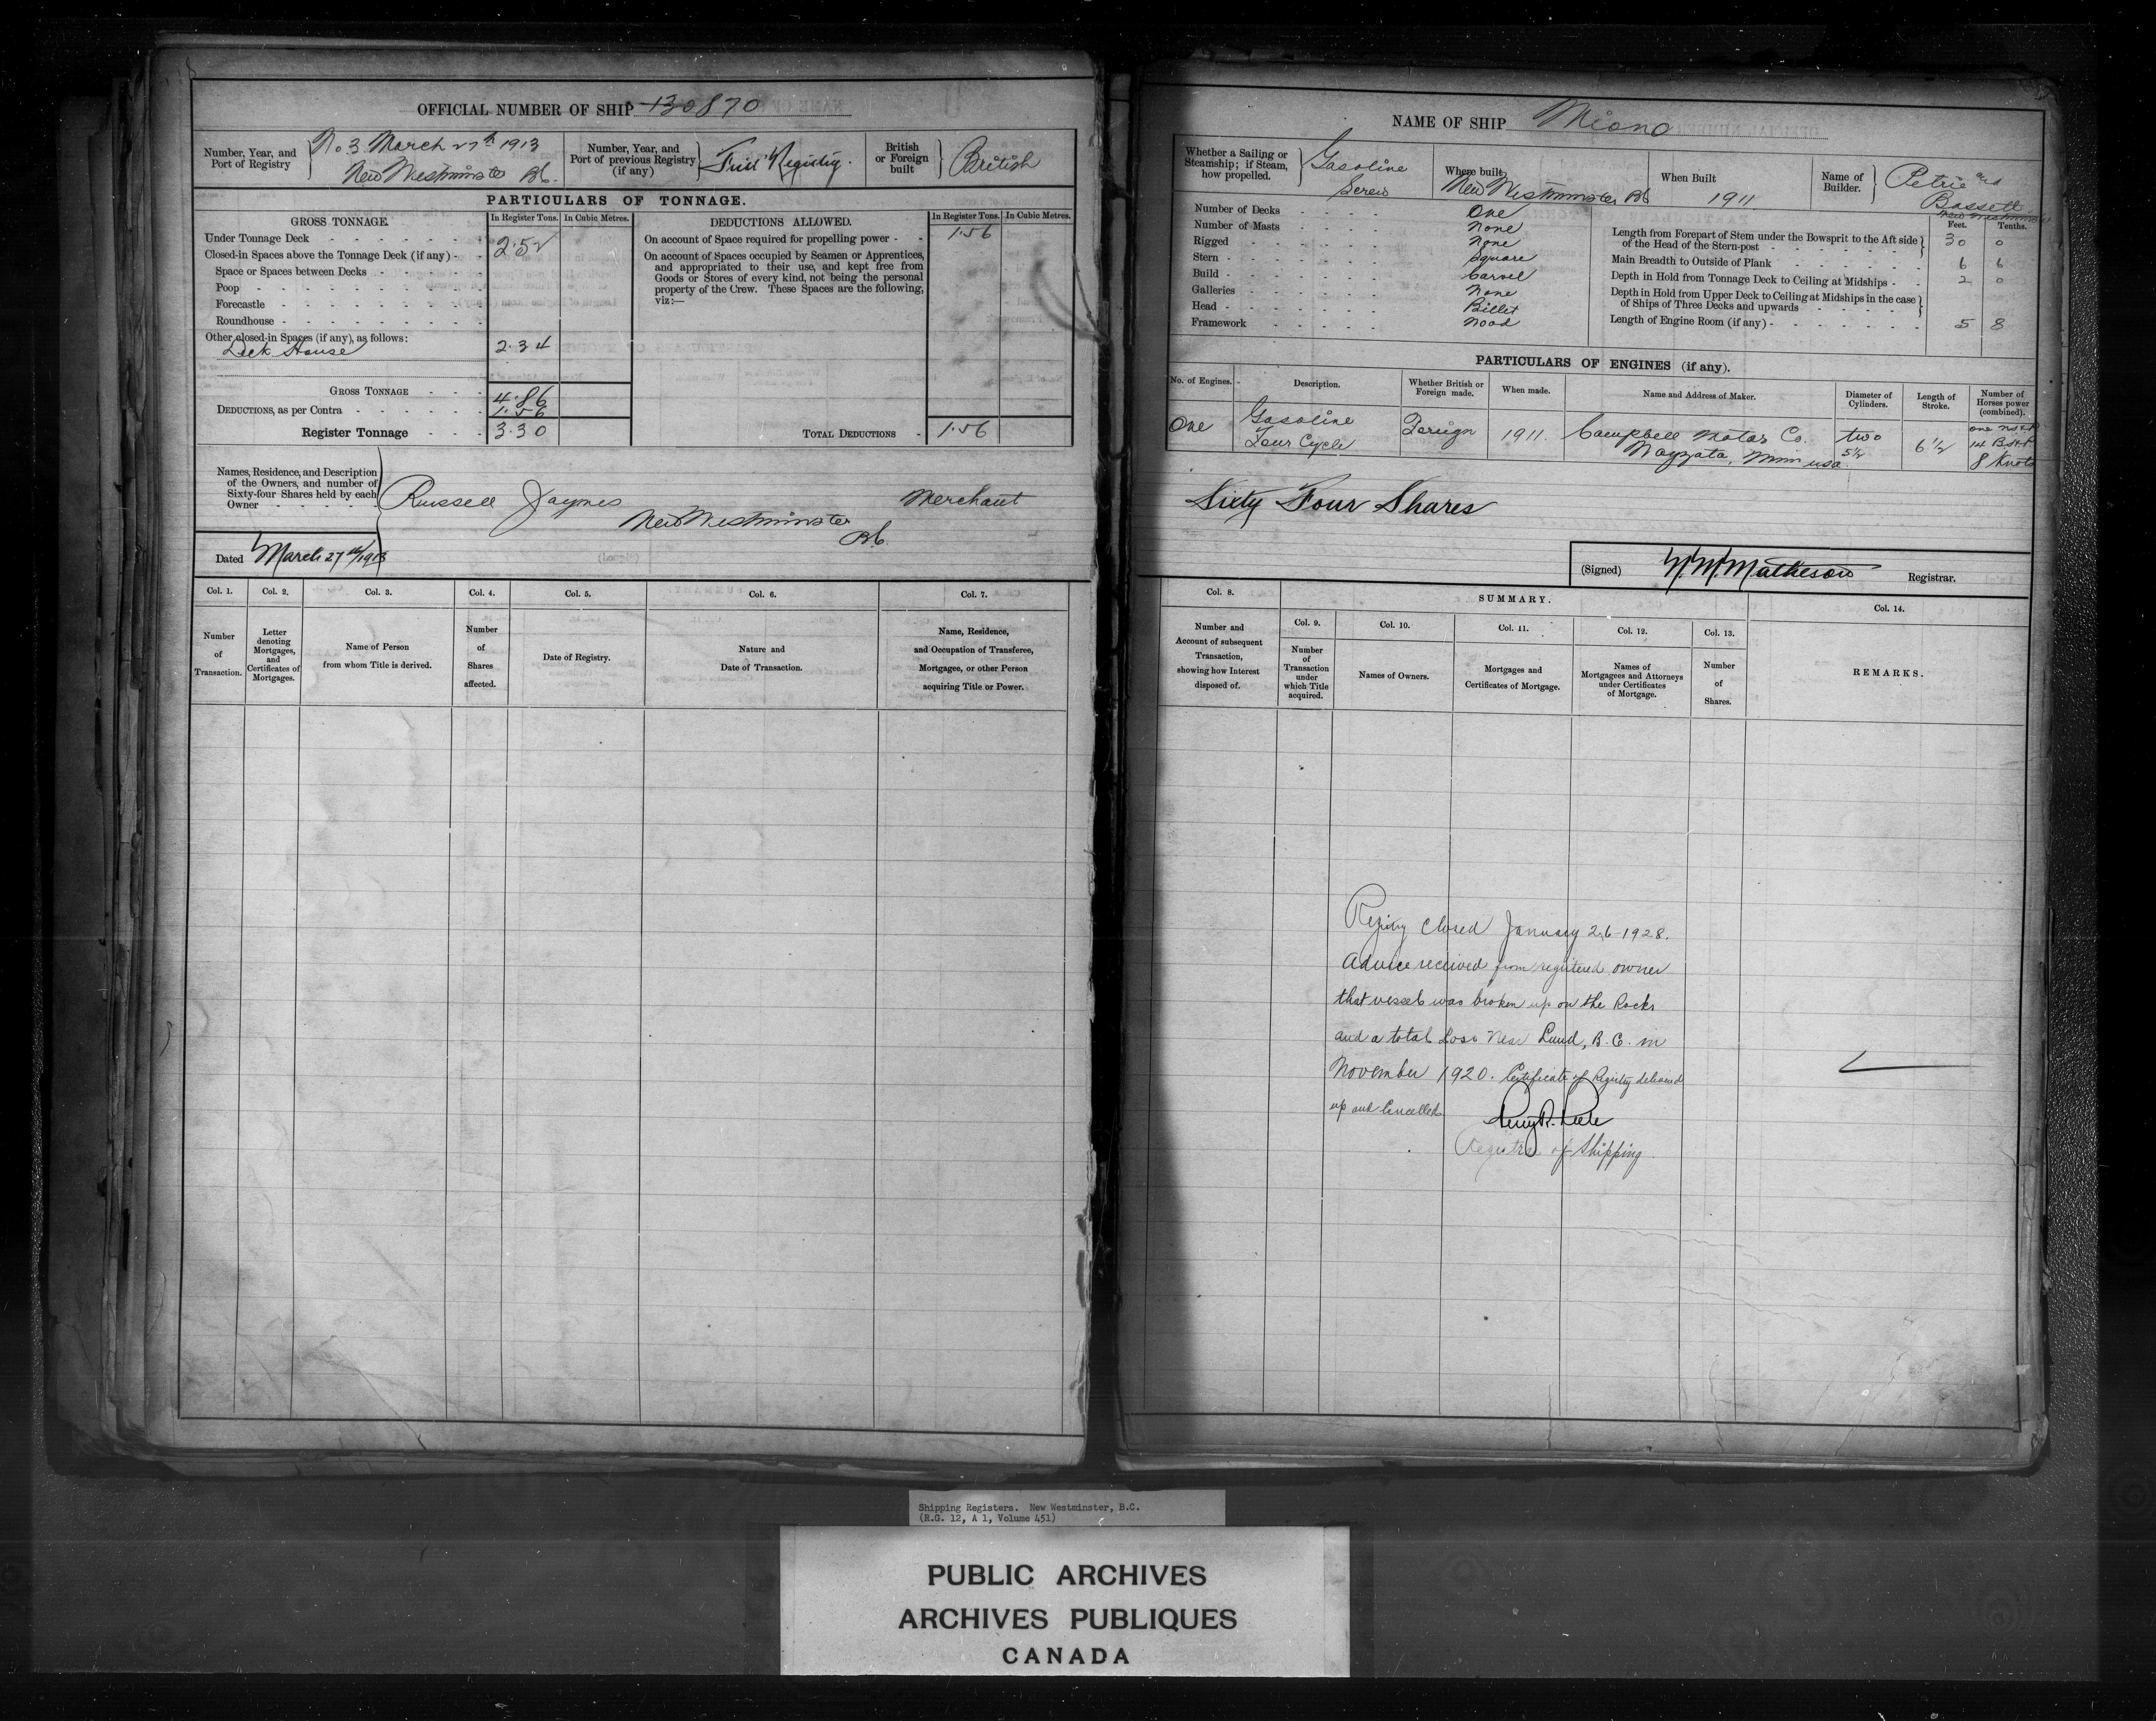 OFFICIAL NUMBER OF SHIP 130870
Number, Year, and Port of Registry No 3 March 27th 1913 New Westminster BC.
Number, Year, and Port of previous Registry (if any) First Registry.
British or Foreign built British
PARTICULARS OF TONNAGE.
GROSS TONNAGE. In Register Tons. In Cubic Metres.
Under Tonnage Deck 2.52
Closed-in Spaces above the Tonnage Deck (if any)
Space or Spaces between Decks
Poop
Forecastle
Roundhouse
Other closed-in Spaces (if any), as follows:
Deck House 2.34
GROSS TONNAGE 4.86
DEDUCTIONS, as per Contra 1.56
Register Tonnage 3.30
DEDUCTIONS ALLOWED. In Register Tons. In Cubic Metres.
On account of Space required for propelling power 1.56
On account of Spaces occupied by Seamen or Apprentices,
and appropriated to their use, and kept free from
Goods or Stores of every kind, not being the personal
property of the Crew. These Spaces are the following,
viz:—
TOTAL DEDUCTIONS 1.56
Names, Residence, and Description
of the Owners, and number of
Sixty-four Shares held by each
Owner
Russell Jaynes New Westminster BC. Merchant
Dated March 27th/1913
Col. 1. Col. 2. Col. 3. Col. 4. Col. 5. Col. 6. Col. 7.
Number of Transaction.
Letter denoting Mortgages, and Certificates of Mortgages.
Name of Person from whom Title is derived.
Number of Shares affected.
Date of Registry.
Nature and Date of Transaction.
Name, Residence, and Occupation of Transferee, Mortgagee, or other Person acquiring Title or Power.
NAME OF SHIP Miono
Whether a Sailing or Steamship; if Steam, how propelled. Gasoline Screw
Where built New Westminster BC
When Built 1911
Name of Builder. Petrie and Bassett New Westminster
Number of Decks One
Number of Masts None
Rigged None
Stern Square
Build Carvel
Galleries None
Head Billet
Framework Wood
Feet. Tenths.
Length from Forepart of Stem under the Bowsprit to the Aft side of the Head of the Stern-post 30 0
Main Breadth to Outside of Plank 6 6
Depth in Hold from Tonnage Deck to Ceiling at Midships 2 0
Depth in Hold from Upper Deck to Ceiling at Midships in the case of Ships of Three Decks and upwards
Length of Engine Room (if any) 5 8
PARTICULARS OF ENGINES (if any).
No. of Engines. Description. Whether British or Foreign made. When made. Name and Address of Maker. Diameter of Cylinders. Length of Stroke. Number of Horses power (combined).
One Gasoline Four Cycle Foreign 1911. Campbell Motor Co. Wayzata, Minn USA. two 5½ 6½ one NHP 14 B.H.P. 8 Knots
Sixty Four Shares
(Signed) N.N. Matheson Registrar.
Col. 8. SUMMARY. Col. 14.
Col. 9. Col. 10. Col. 11. Col. 12. Col. 13.
Number and Account of subsequent Transaction, showing how Interest disposed of.
Number of Transaction under which Title acquired.
Names of Owners.
Mortgages and Certificates of Mortgage.
Names of Mortgagees and Attorneys under Certificates of Mortgage.
Number of Shares.
REMARKS.
Registry Closed January 26-1928.
Advice received from registered owner
that vessel was broken up on the Rocks
and a total Loss Near Lund, B.C. in
November 1920. Certificate of Registry delivered
up and Cancelled
Registrar of Shipping
Shipping Registers. New Westminster, B.C.
(R.G. 12, A 1, Volume 451)
PUBLIC ARCHIVES
ARCHIVES PUBLIQUES
CANADA